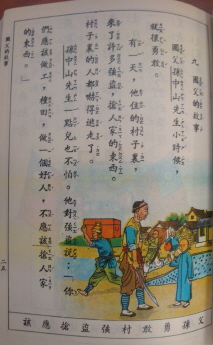 九 國父的故事
國父孫中山先生小時候，
就很勇敢。
有一天，他住的村子裏，
來了許多強盜，搶人家的東西。
村子裏的人都嚇得逃走了。
孫中山先生一點兒也不怕。他對強盜說：「你
們應該做工，種田，做一個好人，不應該搶人家
的東西。」
國父的故事
二五
父孫勇敢村強盜搶應該